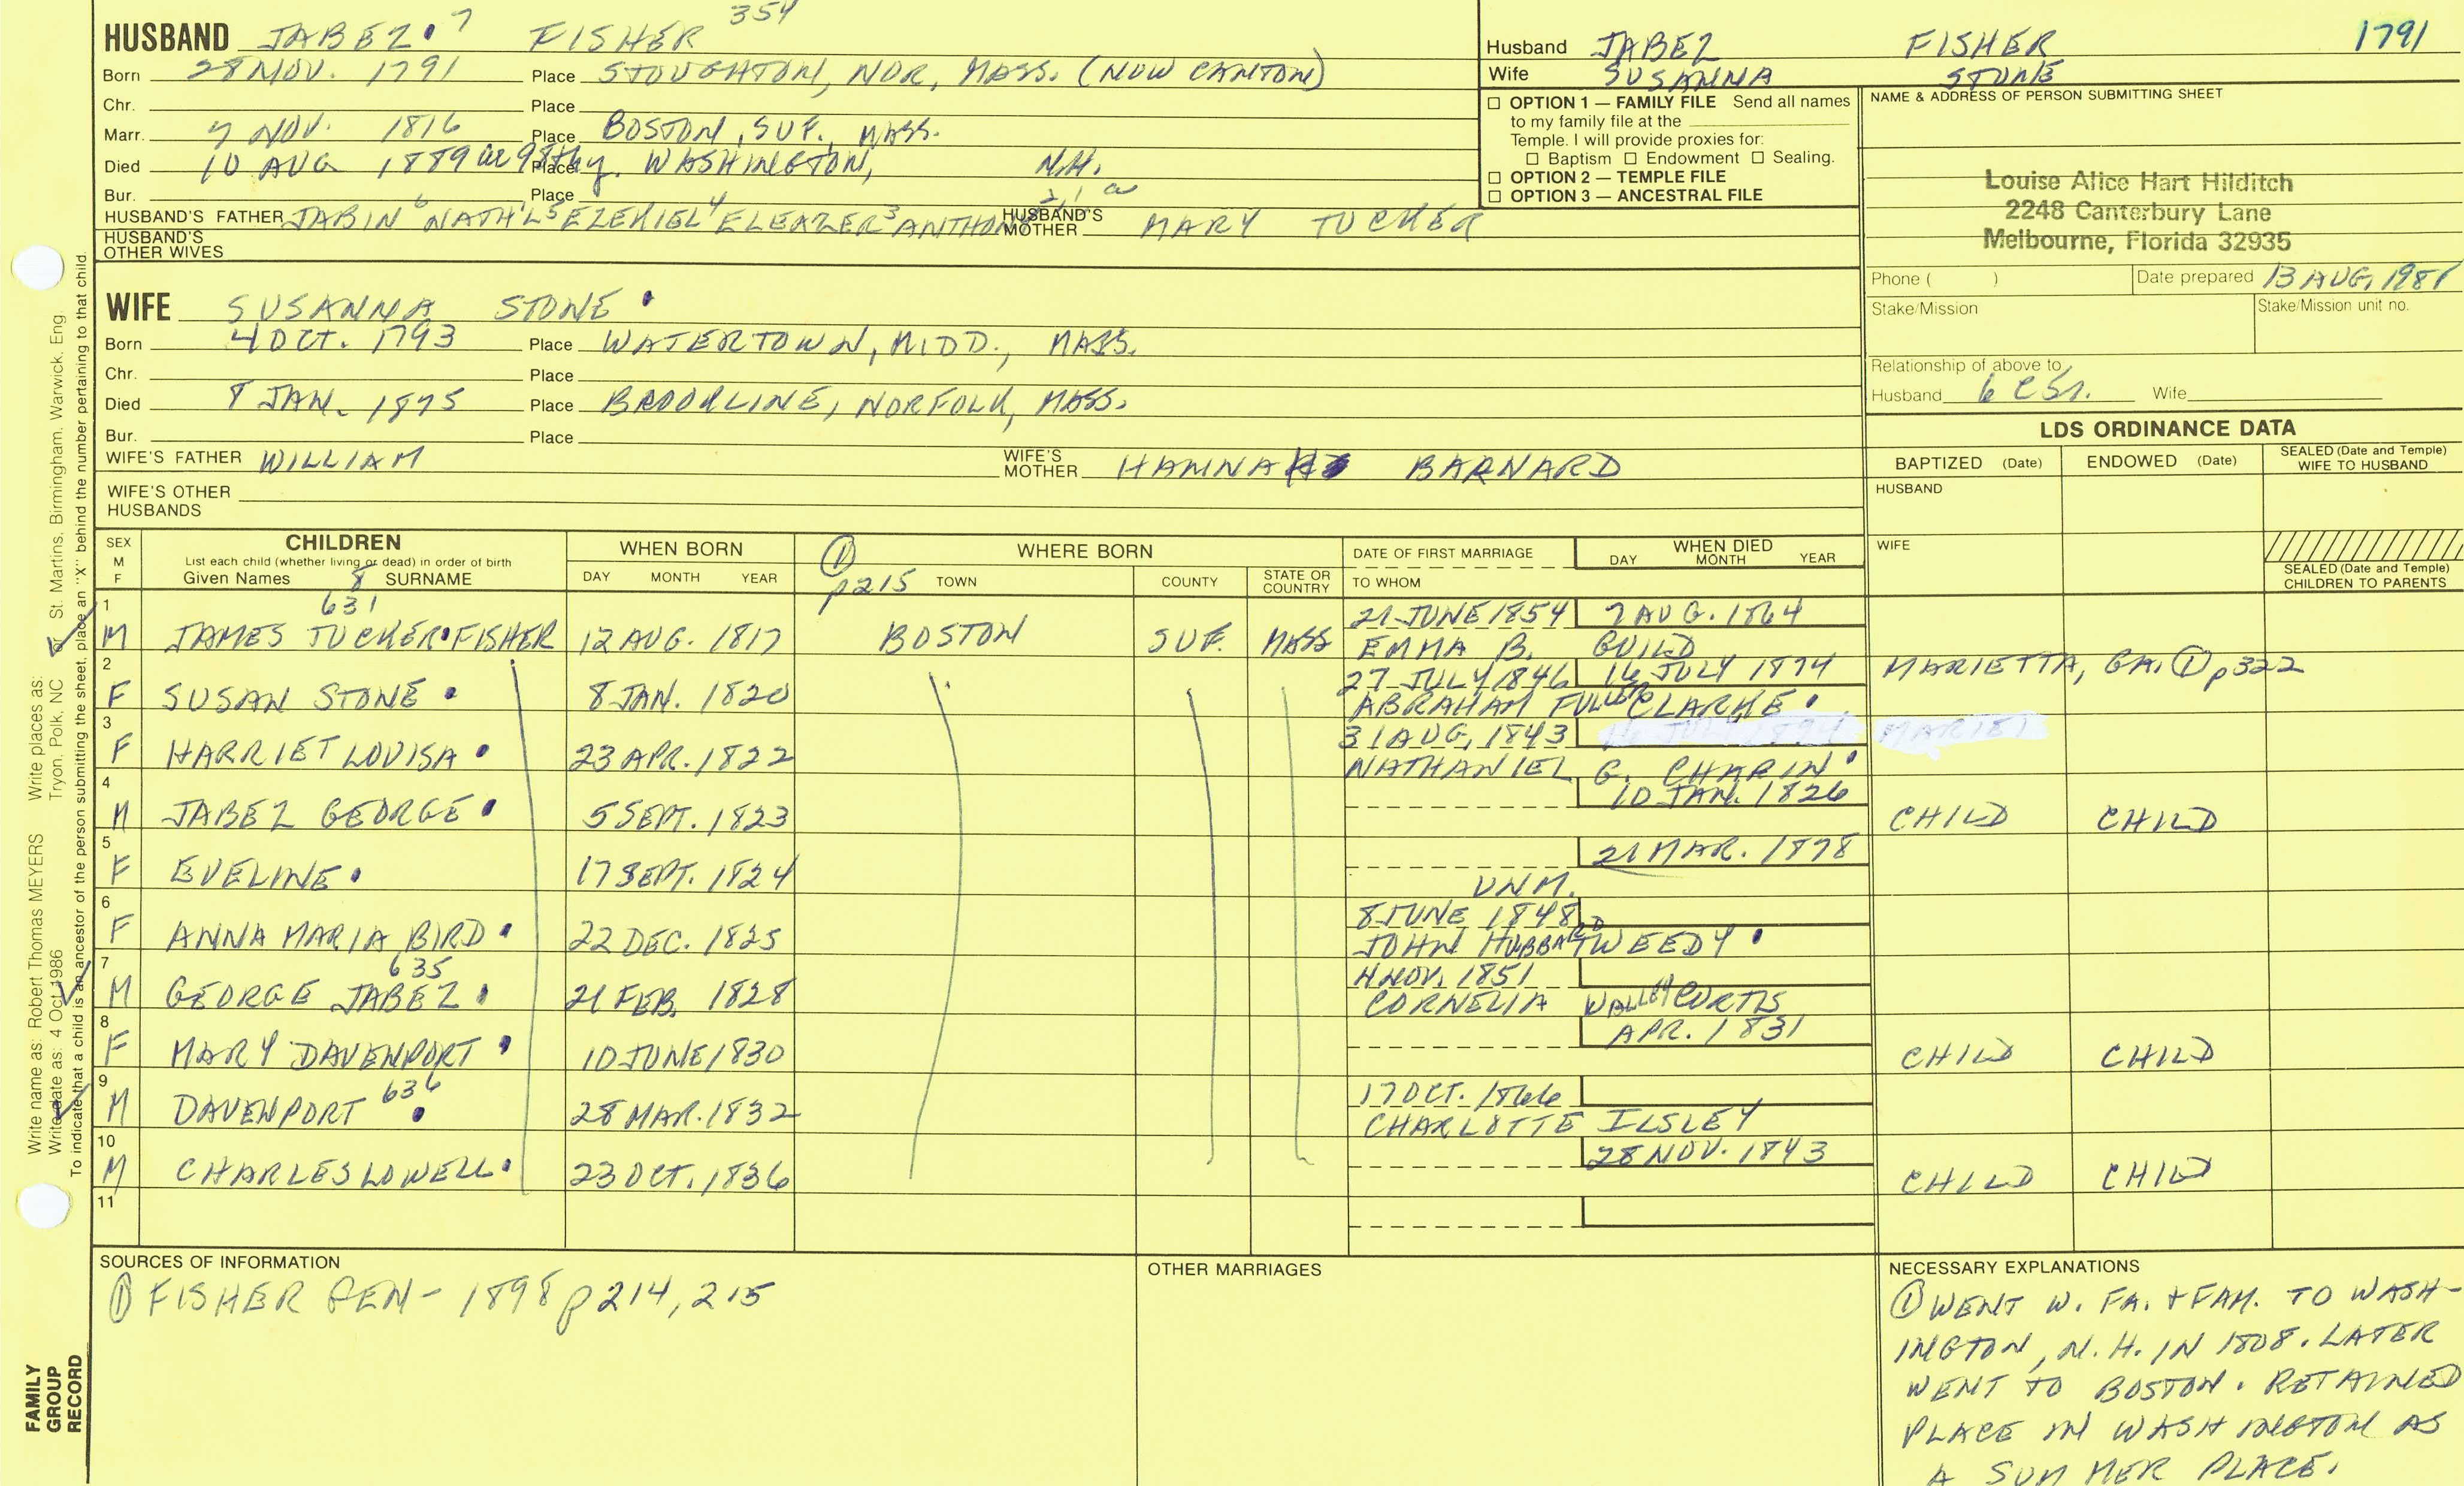 HUSBAND JABEZ 7 FISHER 354
Born 28 NOV. 1791 Place STOUGHTON, NOR, MASS. (NOW CANTON)
Chr. Place
Marr. 7 NOV. 1816 Place BOSTON, SUF., MASS.
Died 10 AUG 1889 Place WASHINGTON, N.H.
Bur. Place
HUSBAND'S FATHER JABIN 6 NATH'L 5 EZEKIEL 4 ELEAZER 3 HUSBAND'S MOTHER MARY TUCKER
HUSBAND'S OTHER WIVES
WIFE SUSANNA STONE
Born 4 OCT. 1793 Place WATERTOWN, MIDD., MASS.
Chr. Place
Died 8 JAN. 1875 Place BROOKLINE, NORFOLK, MASS.
Bur. Place
WIFE'S FATHER WILLIAM WIFE'S MOTHER HANNAH BARNARD
WIFE'S OTHER HUSBANDS
Husband JABEZ FISHER 1791
Wife SUSANNA STONE
☐ OPTION 1 — FAMILY FILE Send all names
to my family file at the
Temple. I will provide proxies for:
☐ Baptism ☐ Endowment ☐ Sealing.
☐ OPTION 2 — TEMPLE FILE
☐ OPTION 3 — ANCESTRAL FILE
NAME & ADDRESS OF PERSON SUBMITTING SHEET
Louise Alice Hart Hilditch
2248 Canterbury Lane
Melbourne, Florida 32935
Phone ( ) Date prepared 13 AUG, 1987
Stake/Mission Stake/Mission unit no.
Relationship of above to
Husband 6 C5r. Wife
LDS ORDINANCE DATA
BAPTIZED (Date) ENDOWED (Date) SEALED (Date and Temple) WIFE TO HUSBAND
HUSBAND
WIFE
SEALED (Date and Temple) CHILDREN TO PARENTS
SEX M F CHILDREN
List each child (whether living or dead) in order of birth
Given Names 8 SURNAME
WHEN BORN DAY MONTH YEAR
① p215 WHERE BORN TOWN COUNTY STATE OR COUNTRY
DATE OF FIRST MARRIAGE TO WHOM
WHEN DIED DAY MONTH YEAR
1 631 21 JUNE 1854 7 AUG. 1864
M JAMES TUCKER FISHER 12 AUG. 1817 BOSTON SUF. MASS EMMA B. GUILD
2 27 JULY 1846 16 JULY 1874 MARIETTA, GA. ① p322
F SUSAN STONE 8 JAN. 1820 ABRAHAM FULLER CLARKE
3 31 AUG, 1843
F HARRIET LOUISA 23 APR. 1822 NATHANIEL G. CHAPIN
4 10 JAN. 1826
M JABEZ GEORGE 5 SEPT. 1823 CHILD CHILD
5 21 MAR. 1878
F EVELINE 17 SEPT. 1824 UNM.
6 8 JUNE 1848
F ANNA MARIA BIRD 22 DEC. 1825 JOHN HUBBARD TWEEDY
7 635 4 NOV. 1851
M GEORGE JABEZ 21 FEB. 1828 CORNELIA WALLEY CURTIS
8 APR. 1831
F MARY DAVENPORT 10 JUNE 1830 CHILD CHILD
9 636 17 OCT. 1866
M DAVENPORT 28 MAR. 1832 CHARLOTTE ILSLEY
10 28 NOV. 1843
M CHARLES LOWELL 23 OCT. 1836 CHILD CHILD
11
SOURCES OF INFORMATION
① FISHER GEN- 1898 p214, 215
OTHER MARRIAGES
NECESSARY EXPLANATIONS
① WENT W. FA. + FAM. TO WASH-
INGTON, N.H. IN 1808. LATER
WENT TO BOSTON. RETAINED
PLACE IN WASHINGTON AS
A SUMMER PLACE.
Write name as: Robert Thomas MEYERS Write places as: St. Martins, Birmingham, Warwick, Eng.
Write date as: 4 Oct 1986 Tryon, Polk, NC or
To indicate that a child is an ancestor of the person submitting the sheet, place an "X" behind the number pertaining to that child.
FAMILY
GROUP
RECORD